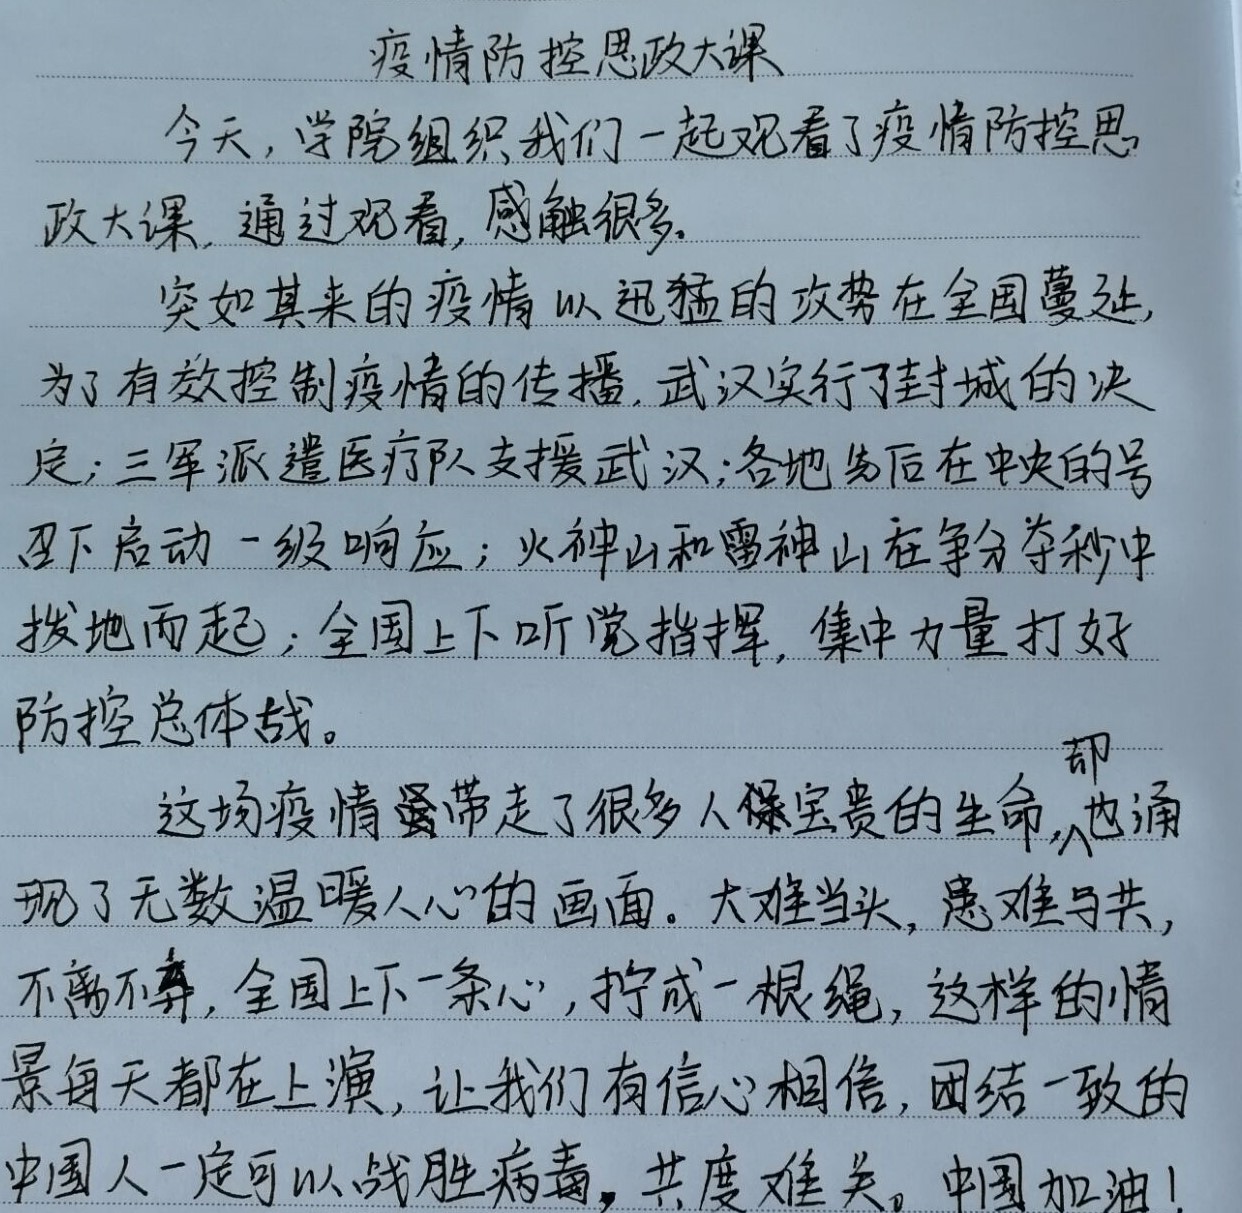 疫情防控思政大课
今天，学院组织我们一起观看了疫情防控思
政大课，通过观看，感触很多。
突如其来的疫情以迅猛的攻势在全国蔓延，
为了有效控制疫情的传播，武汉实行了封城的决
定；三军派遣医疗队支援武汉；各地先后在中央的号
召下启动一级响应；火神山和雷神山在争分夺秒中
拨地而起；全国上下听党指挥，集中力量打好
防控总体战。
这场疫情带走了很多人宝贵的生命，却也涌
现了无数温暖人心的画面。大难当头，患难与共，
不离不弃，全国上下一条心，拧成一根绳，这样的情
景每天都在上演，让我们有信心相信，团结一致的
中国人一定可以战胜病毒，共度难关。中国加油！